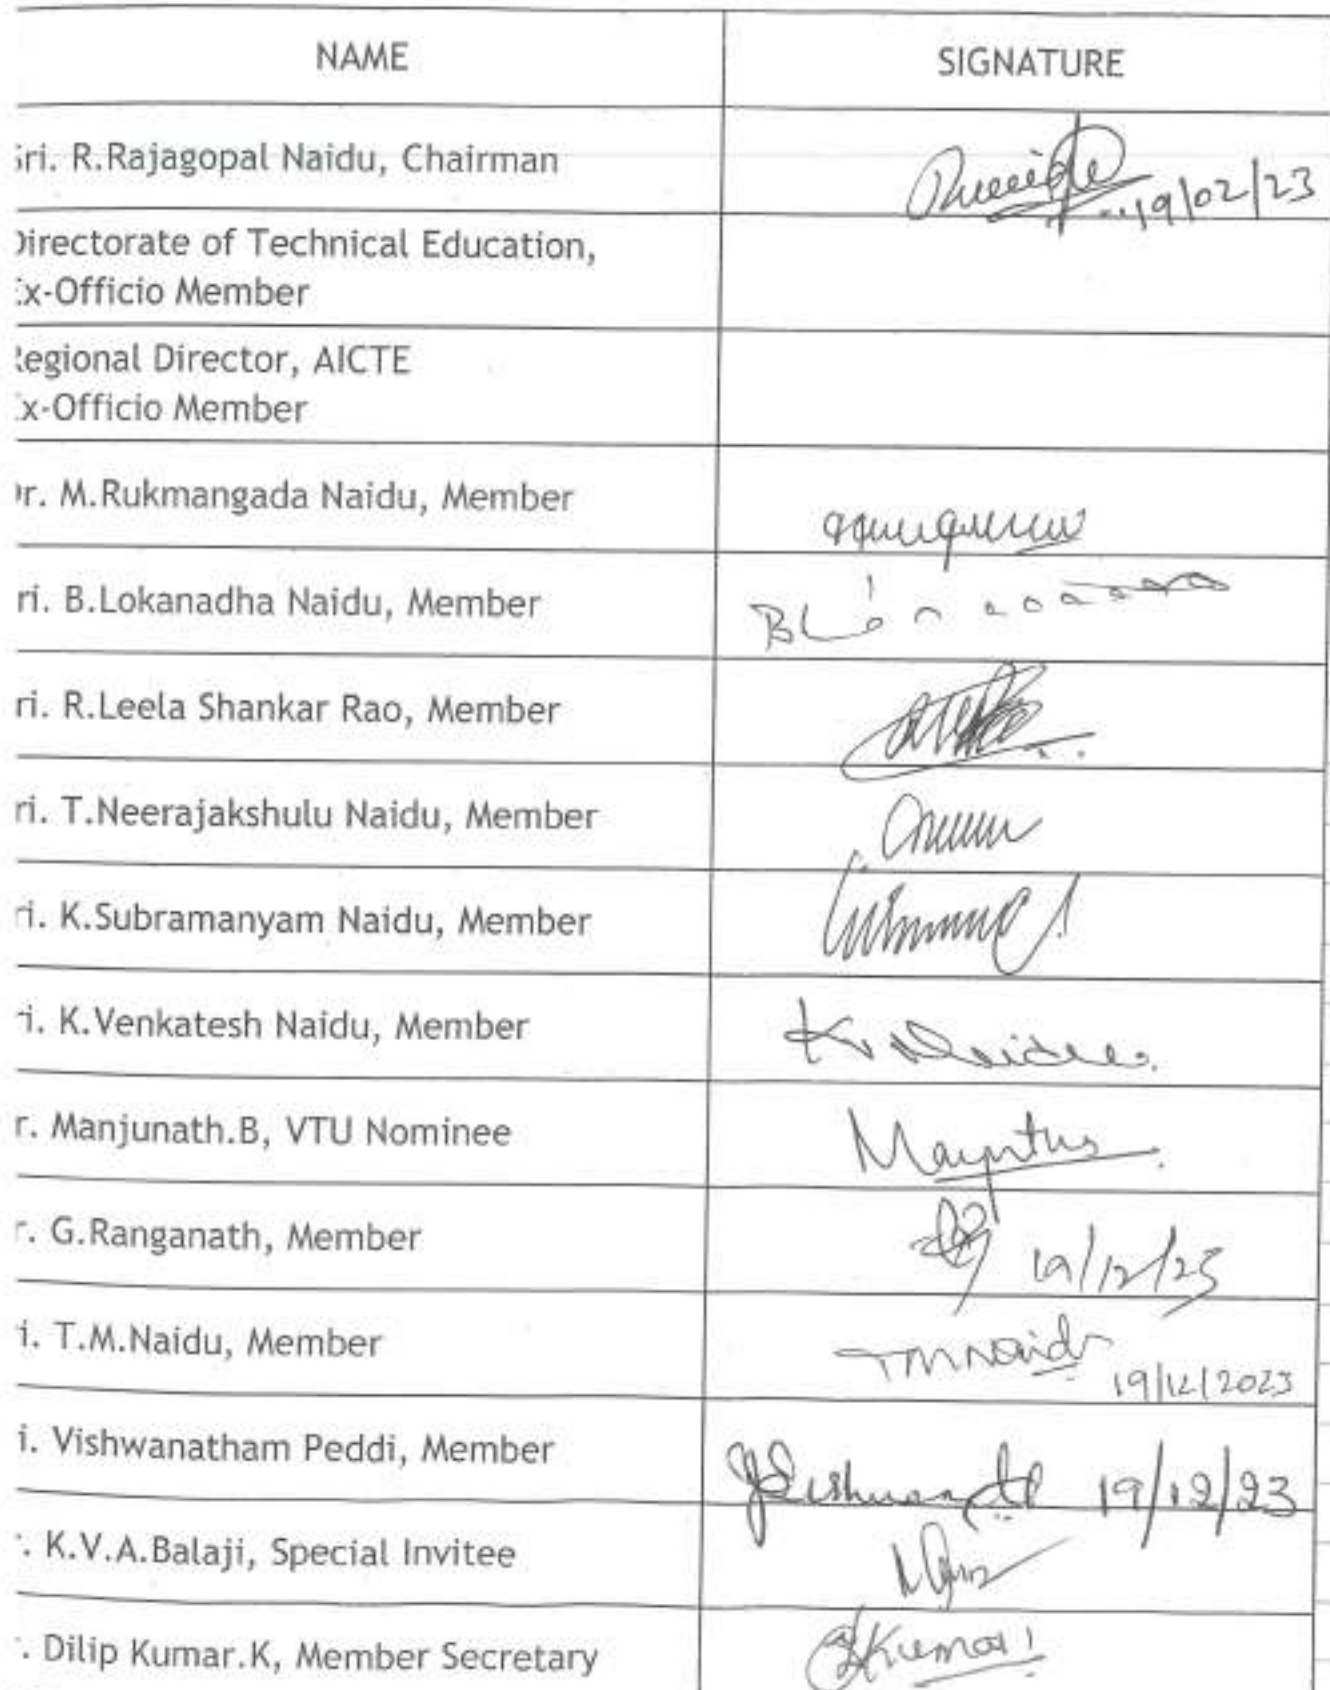 NAME SIGNATURE
ri. R.Rajagopal Naidu, Chairman
19/02/23
irectorate of Technical Education,
x-Officio Member
egional Director, AICTE
x-Officio Member
r. M.Rukmangada Naidu, Member
ri. B.Lokanadha Naidu, Member
ri. R.Leela Shankar Rao, Member
ri. T.Neerajakshulu Naidu, Member
ri. K.Subramanyam Naidu, Member
i. K.Venkatesh Naidu, Member K.V Naidu
r. Manjunath.B, VTU Nominee
r. G.Ranganath, Member 19/12/23
i. T.M.Naidu, Member TMNaidu
19/12/2023
i. Vishwanatham Peddi, Member 19/12/23
. K.V.A.Balaji, Special Invitee
. Dilip Kumar.K, Member Secretary